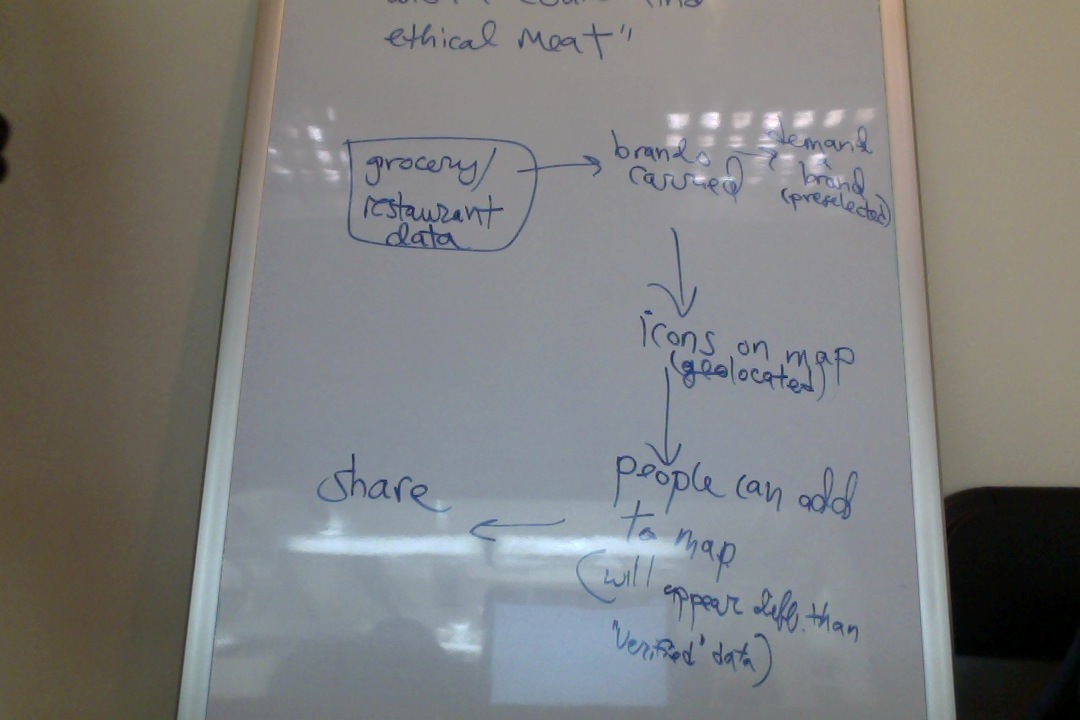 ethical meat"
grocery/
restaurant
data
brands
carried
demand
a
brand
(preselected)
icons on map
(geolocated)
people can add
to map
(will appear diff. than
"verified" data)
share